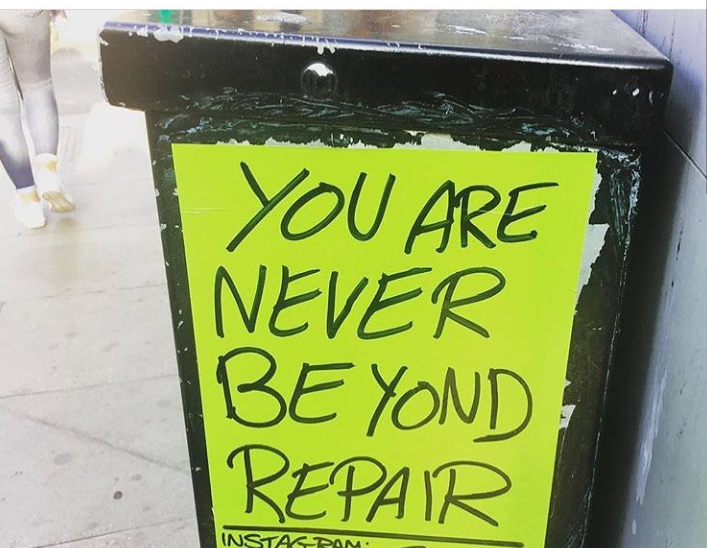 YOU ARE
NEVER
BEYOND
REPAIR
INSTAGRAM: